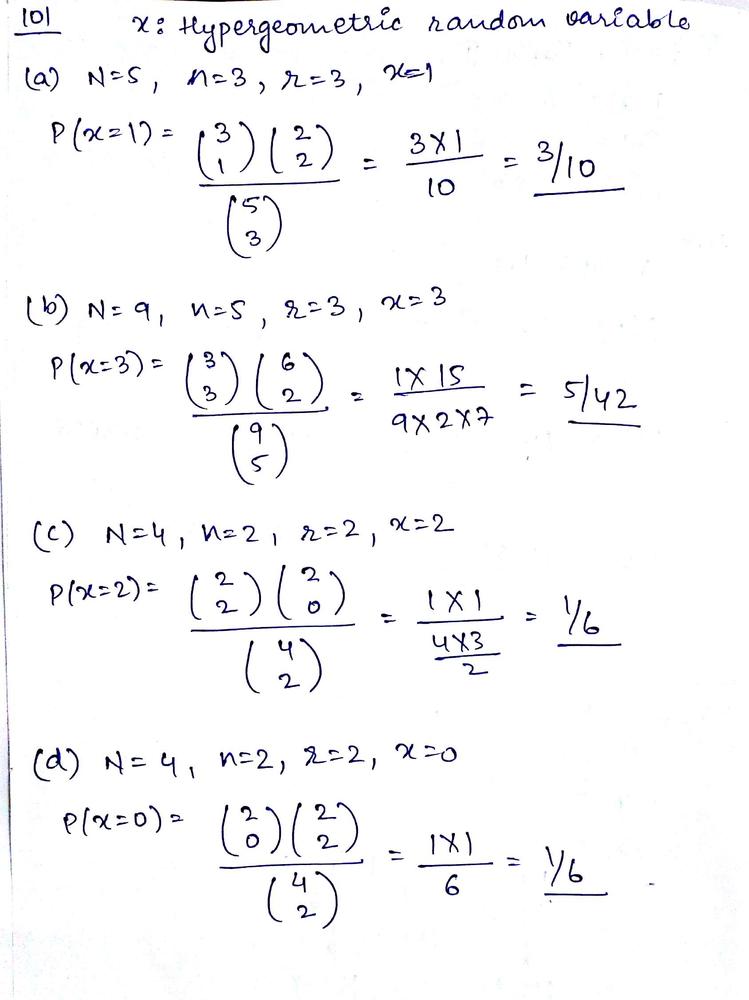 101 x: Hypergeometric random variable
(a) N=5, n=3, r=3, x=1
P(x=1) = (3 1)(2 2) / (5 3) = 3×1 / 10 = 3/10
(b) N=9, n=5, r=3, x=3
P(x=3) = (3 3)(6 2) / (9 5) = 1×15 / 9×2×7 = 5/42
(c) N=4, n=2, r=2, x=2
P(x=2) = (2 2)(2 0) / (4 2) = 1×1 / 4×3/2 = 1/6
(d) N=4, n=2, r=2, x=0
P(x=0) = (2 0)(2 2) / (4 2) = 1×1 / 6 = 1/6